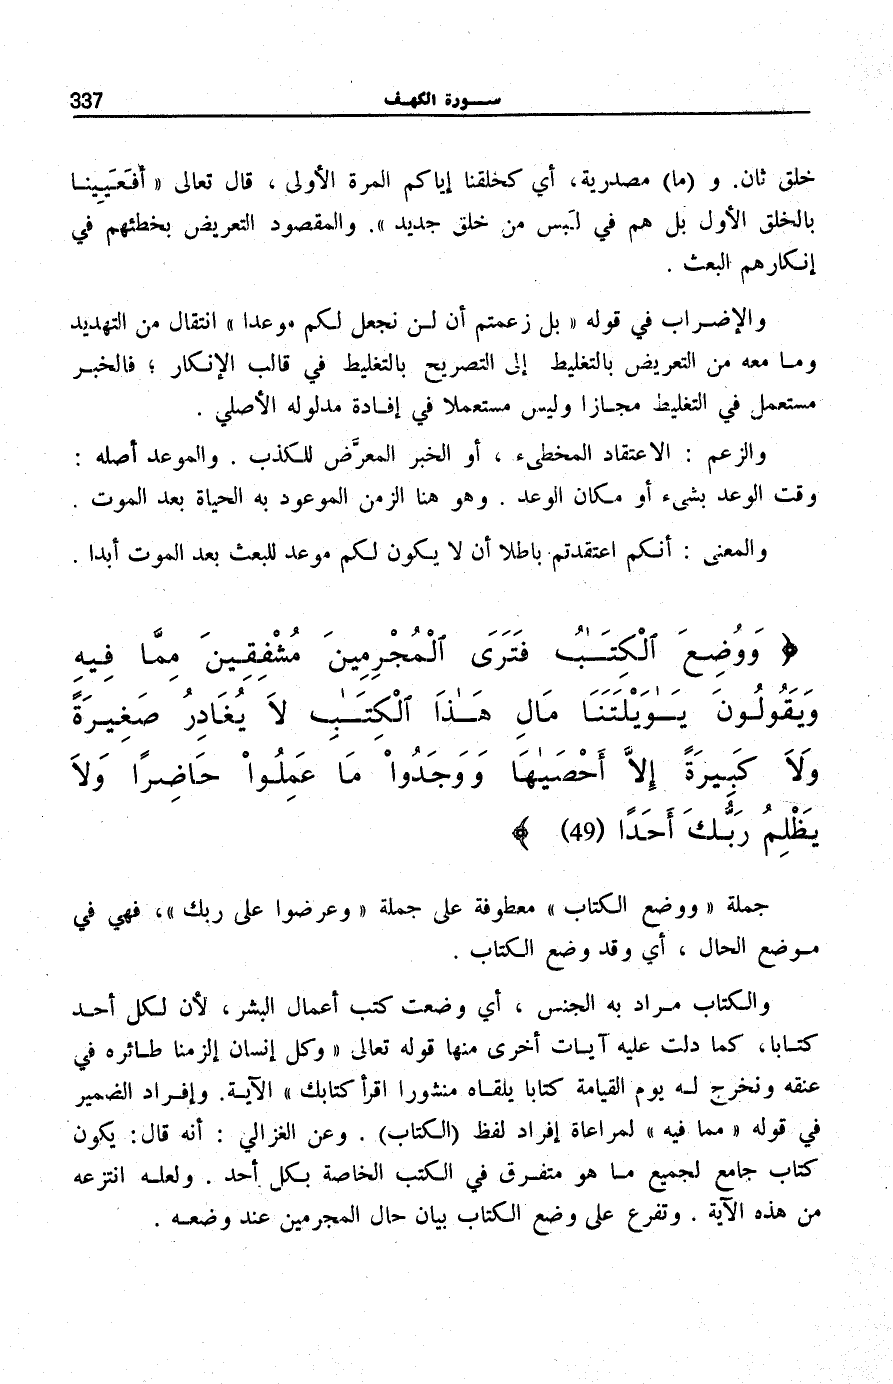 سورة الكهف 337
خلق ثان. و (ما) مصدرية، أي كخلقنا إياكم المرة الأولى ، قال تعالى « أَفَعَيِينا
بالخلق الأول بل هم في لَبس من خلق جديد ». والمقصود التعريض بخطئهم في
إنكارهم البعث .
والإضراب في قوله « بل زعمتم أن لن نجعل لكم موعدا » انتقال من التهديد
وما معه من التعريض بالتغليط إلى التصريح بالتغليط في قالب الإنكار ؛ فالخبر
مستعمل في التغليط مجازا وليس مستعملا في إفادة مدلوله الأصلي .
والزعم : الاعتقاد المخطىء ، أو الخبر المعرَّض للكذب . والموعد أصله :
وقت الوعد بشيء أو مكان الوعد . وهو هنا الزمن الموعود به الحياة بعد الموت .
والمعنى : أنكم اعتقدتم باطلا أن لا يكون لكم موعد للبعث بعد الموت أبدا .
﴿ وَوُضِعَ ٱلْكِتَـٰبُ فَتَرَى ٱلْمُجْرِمِينَ مُشْفِقِينَ مِمَّا فِيهِ
وَيَقُولُونَ يَـٰوَيْلَتَنَا مَالِ هَـٰذَا ٱلْكِتَـٰبِ لَا يُغَادِرُ صَغِيرَةً
وَلَا كَبِيرَةً إِلَّا أَحْصَيٰهَا وَوَجَدُواْ مَا عَمِلُواْ حَاضِرًا وَلَا
يَظْلِمُ رَبُّكَ أَحَدًا (49) ﴾
جملة « ووضع الكتاب » معطوفة على جملة « وعرضوا على ربك »، فهي في
موضع الحال ، أي وقد وضع الكتاب .
والكتاب مراد به الجنس ، أي وضعت كتب أعمال البشر، لأن لكل أحد
كتابا، كما دلت عليه آيات أخرى منها قوله تعالى « وكل إنسان إلزمنا طائره في
عنقه ونخرج له يوم القيامة كتابا يلقاه منثورا اقرأ كتابك » الآية. وإفراد الضمير
في قوله « مما فيه » لمراعاة إفراد لفظ (الكتاب) . وعن الغزالي : أنه قال: يكون
كتاب جامع لجميع ما هو متفرق في الكتب الخاصة بكل أحد . ولعله انتزعه
من هذه الآية . وتفرع على وضع الكتاب بيان حال المجرمين عند وضعه .